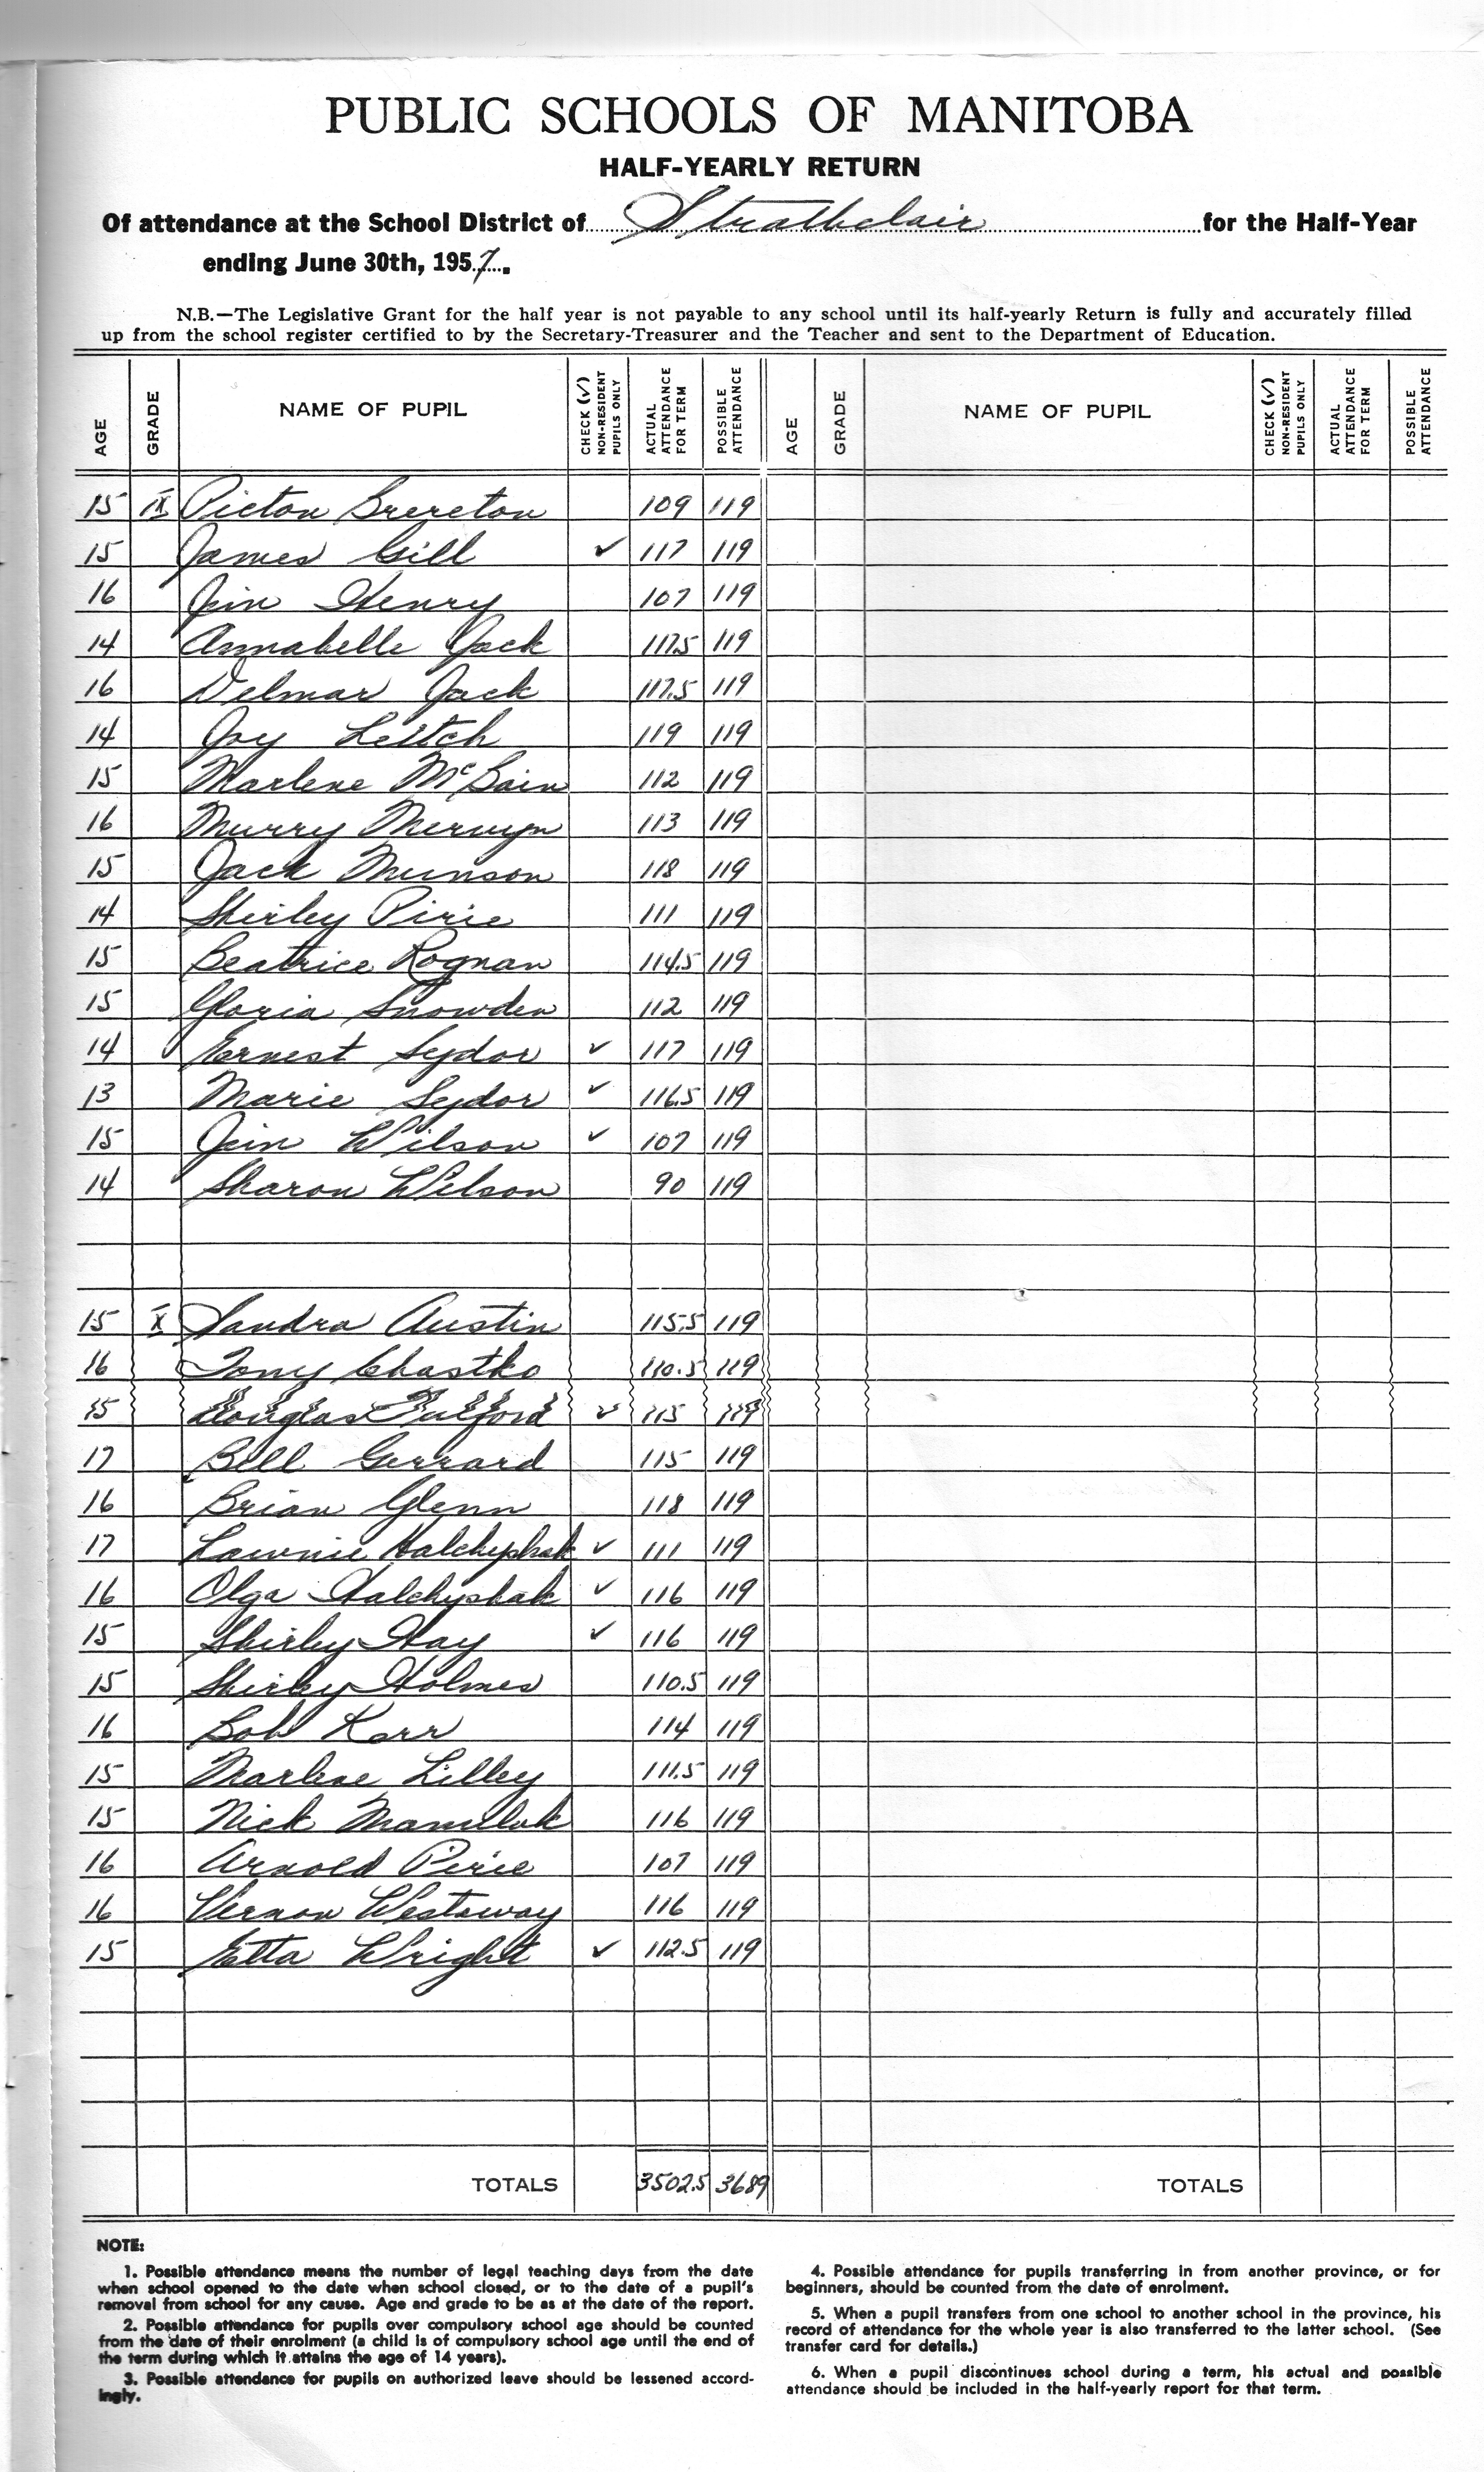 PUBLIC SCHOOLS OF MANITOBA
HALF-YEARLY RETURN
Of attendance at the School District of Strathclair for the Half-Year
ending June 30th, 1957.
N.B.—The Legislative Grant for the half year is not payable to any school until its half-yearly Return is fully and accurately filled
up from the school register certified to by the Secretary-Treasurer and the Teacher and sent to the Department of Education.
AGE GRADE NAME OF PUPIL CHECK (✓) NON-RESIDENT PUPILS ONLY ACTUAL ATTENDANCE FOR TERM POSSIBLE ATTENDANCE AGE GRADE NAME OF PUPIL CHECK (✓) NON-RESIDENT PUPILS ONLY ACTUAL ATTENDANCE FOR TERM POSSIBLE ATTENDANCE
15 IX Picton Brereton 109 119
15 James Gill ✓ 117 119
16 Jim Henry 107 119
14 Annabelle Jack 117.5 119
16 Delmar Jack 117.5 119
14 Joy Leitch 119 119
15 Marlene McBain 112 119
16 Murry Mervyn 113 119
15 Jack Munson 118 119
14 Shirley Pirie 111 119
15 Beatrice Rognan 114.5 119
15 Gloria Snowden 112 119
14 Ernest Sydor ✓ 117 119
13 Marie Sydor ✓ 116.5 119
15 Jim Wilson ✓ 107 119
14 Sharon Wilson 90 119
15 X Sandra Austin 115.5 119
16 Tony Chastko 110.5 119
15 Douglas Fulford ✓ 115 119
17 Bill Gerrard 115 119
16 Brian Glenn 118 119
17 Lawnie Halchyshak ✓ 111 119
16 Olga Halchyshak ✓ 116 119
15 Shirley Hay ✓ 116 119
15 Shirley Holmes 110.5 119
16 Bob Kerr 114 119
15 Marlene Lilley 111.5 119
15 Nick Manuluk 116 119
16 Arnold Pirie 107 119
16 Vernon Westaway 116 119
15 Etta Wright ✓ 112.5 119
TOTALS 3502.5 3689 TOTALS
NOTE:
1. Possible attendance means the number of legal teaching days from the date
when school opened to the date when school closed, or to the date of a pupil's
removal from school for any cause. Age and grade to be as at the date of the report.
2. Possible attendance for pupils over compulsory school age should be counted
from the date of their enrolment (a child is of compulsory school age until the end of
the term during which it attains the age of 14 years).
3. Possible attendance for pupils on authorized leave should be lessened accord-
ingly.
4. Possible attendance for pupils transferring in from another province, or for
beginners, should be counted from the date of enrolment.
5. When a pupil transfers from one school to another school in the province, his
record of attendance for the whole year is also transferred to the latter school. (See
transfer card for details.)
6. When a pupil discontinues school during a term, his actual and possible
attendance should be included in the half-yearly report for that term.